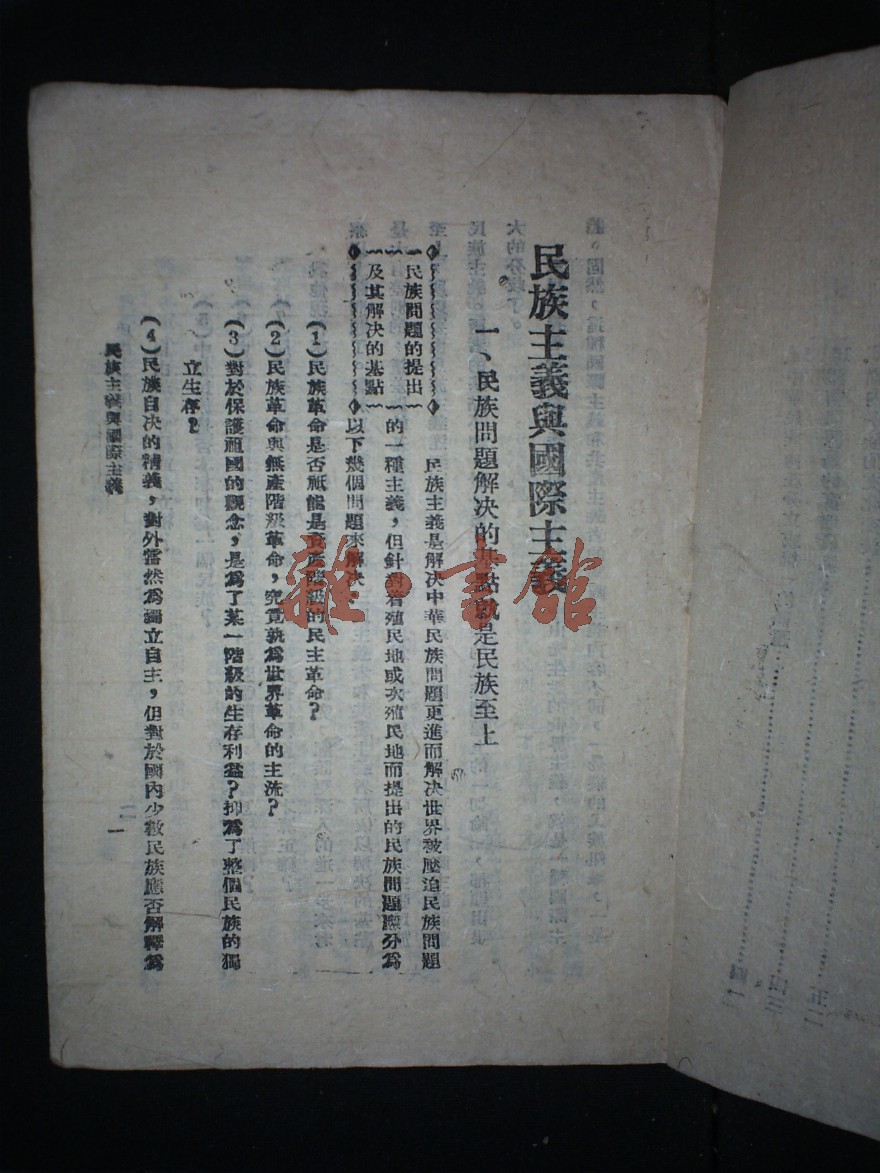 民族主義與國際主義
一、民族問題解决的基點就是民族至上
民族問題的提出
及其解决的基點
民族主義是解决中華民族問題更進而解决世界被壓迫民族問題
的一種主義，但針對着殖民地或次殖民地而提出的民族問題應分為
以下幾個問題來解决：
(1)民族革命是否祇能是資產階級的民主革命？
(2)民族革命與無產階級革命，究竟孰為世界革命的主流？
(3)對於保護祖國的觀念，是為了某一階級的生存利益？抑為了整個民族的獨
立生存？
(4)民族自决的精義，對外當然為獨立自主，但對於國內少數民族應否解釋為
民族主義與國際主義
一
雜·書館